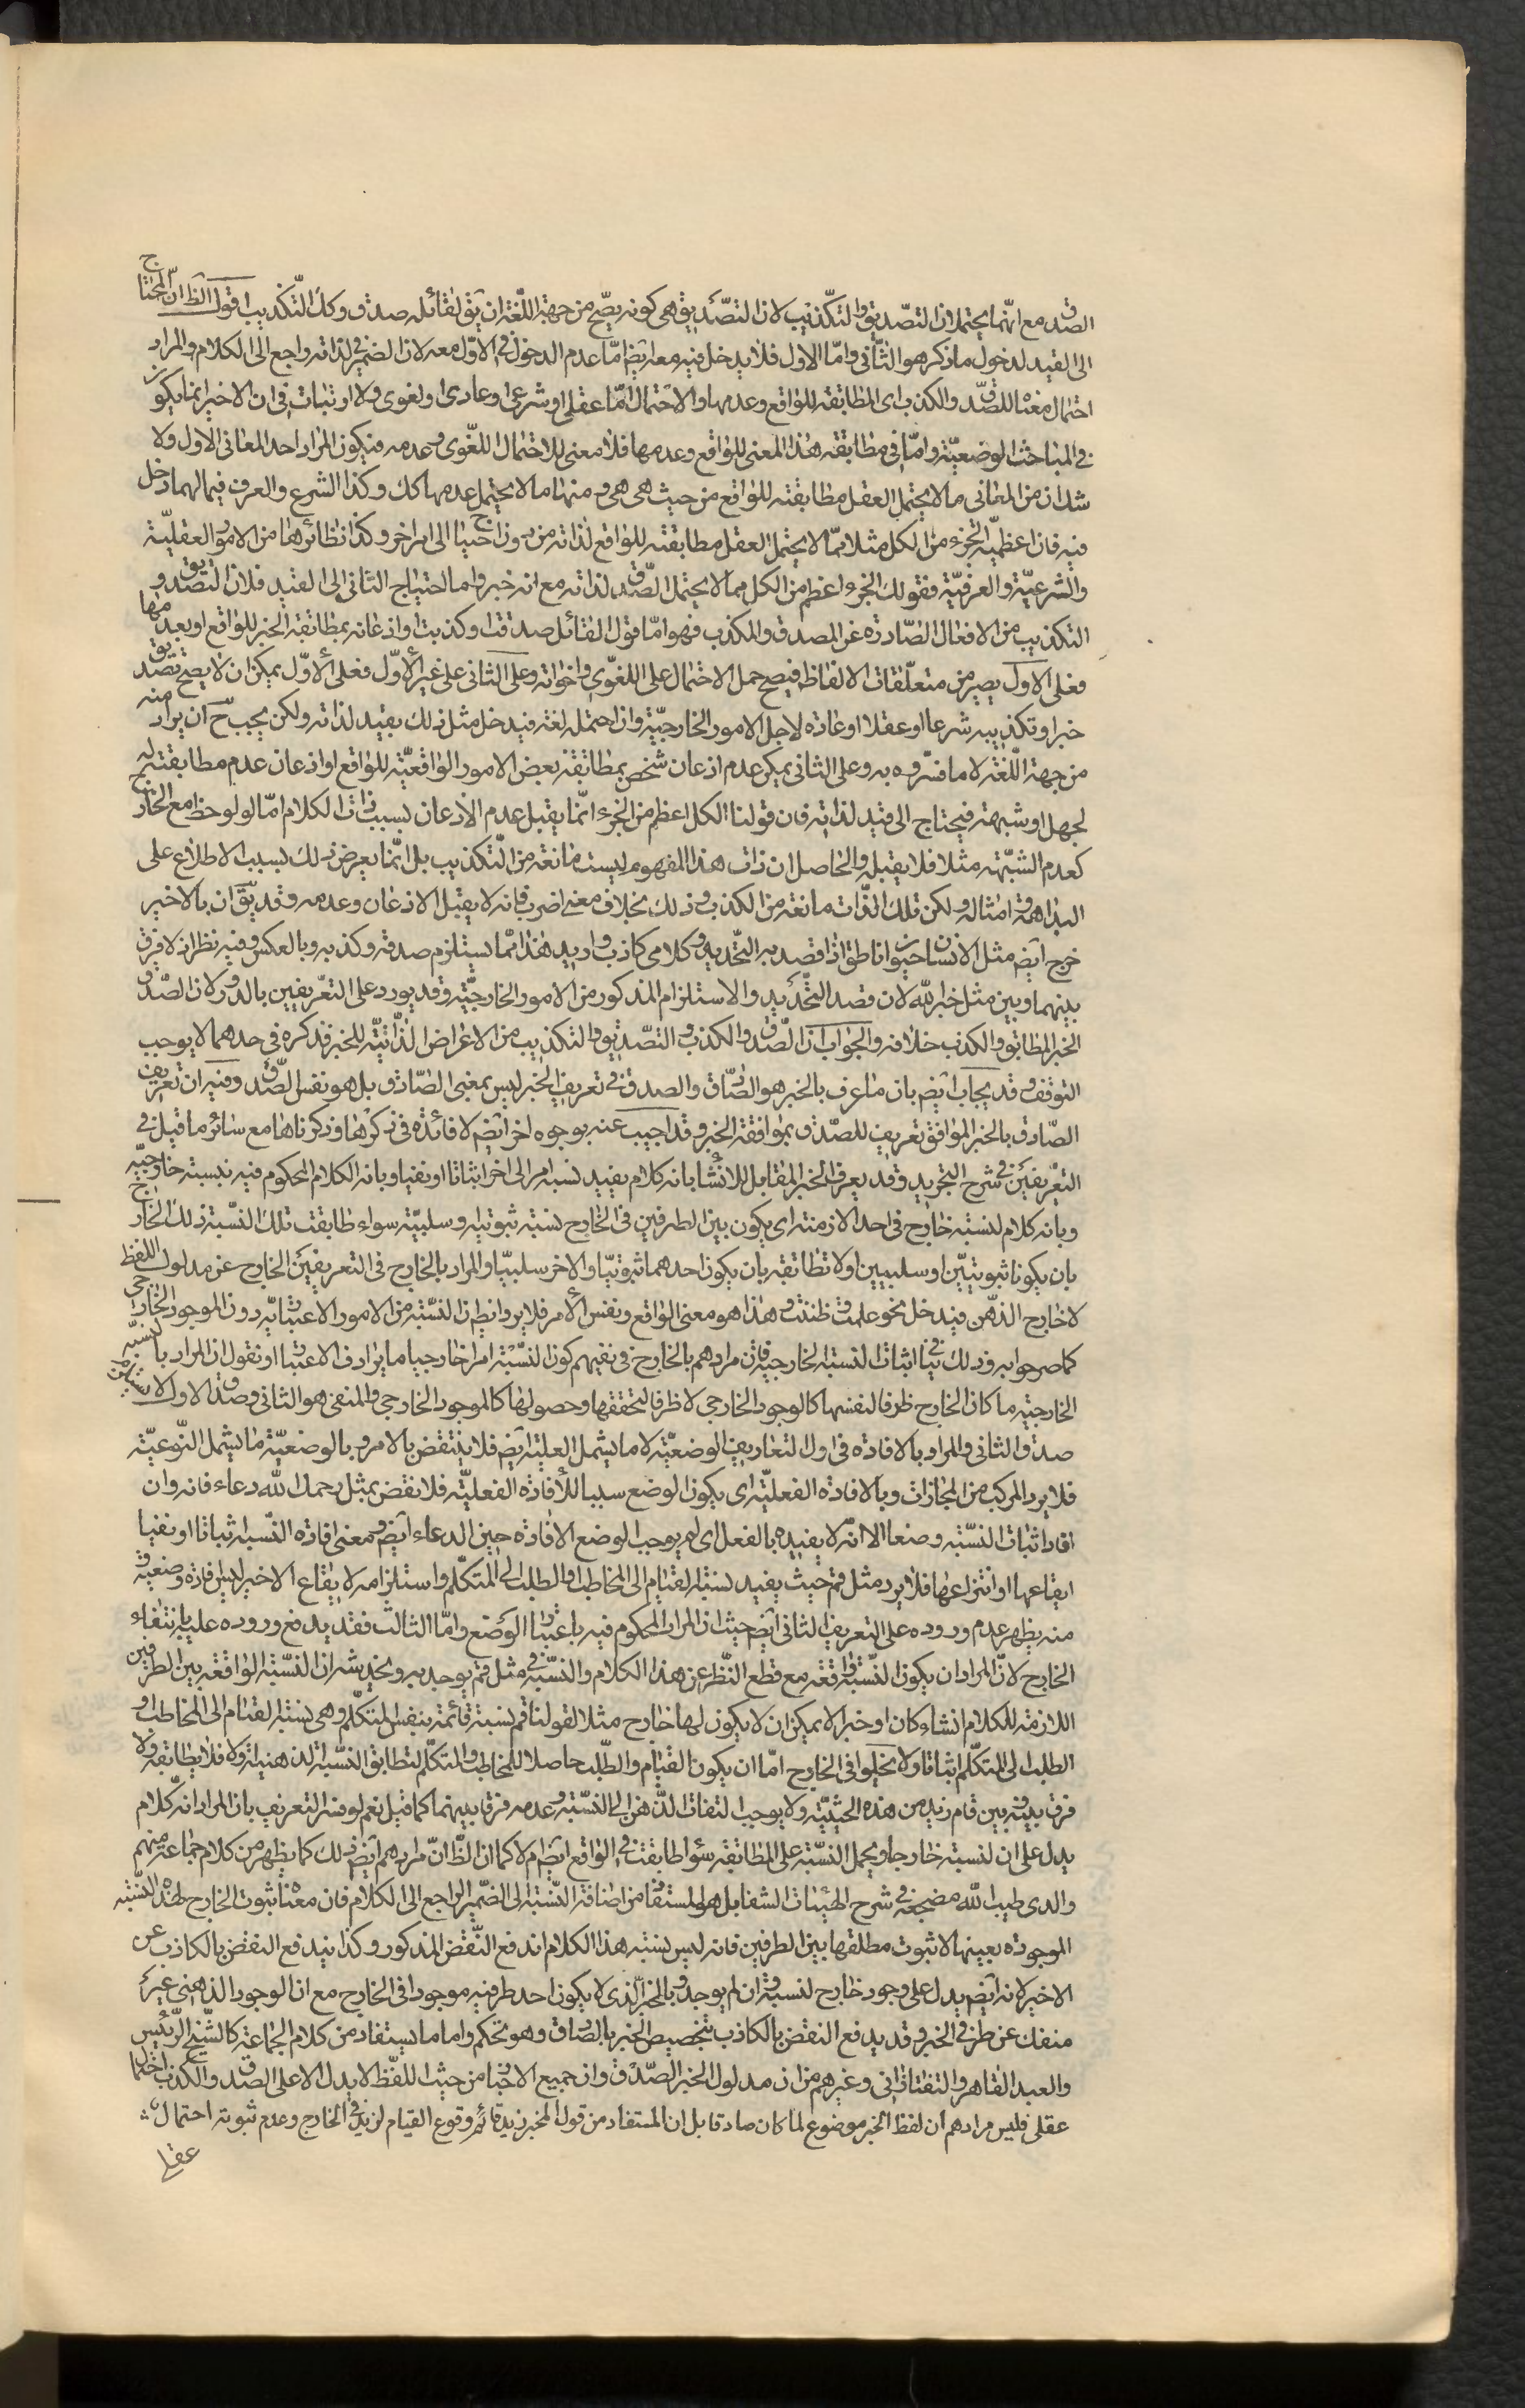 الصدق مع انهما يحتملان التصديق والتكذيب لان التصديق هى كونه يصح من جهة اللغة ان يق لقائله صدق وكك التكذيب اقول الظ ان المحتاج
الى القيد لدخول ما ذكر هو الثانى واما الاول فلا يدخل فيه معه ايض اما عدم الدخول فى الاول معه لان الضمير فى لذاته راجع الى الكلام والمراد
احتمال معناه للصدق والكذب اى المطابقة للواقع وعدمها والاحتمال اما عقلى او شرعى او عادى او لغوى ولا ارتباب فى ان الاخير انما يكون
فى المباحث الوضعية واما فى مطابقة هذا المعنى للواقع وعدمها فلا معنى للاحتمال اللغوى وعدمه فيكون المراد احد المعانى الاول ولا
شك ان من المعانى ما لا يحتمل العقل مطابقته للواقع من حيث هى هى ومنها ما لا يحتمل عدمها كك وكذا الشرع والعرف فيما لهما دخل
فيه فان اعظمية الجزء من الكل مثلا مما لا يحتمل العقل مطابقته للواقع لذاته من دون احتياج الى امر اخر وكذا نظائرها من الامور العقلية
والشرعية والعرفية فقولك الجزء اعظم من الكل مما لا يحتمل الصدق لذاته مع انه خبر واما احتياج الثانى الى القيد فلان التصديق و
التكذيب من الافعال الصادرة عن المصدق والمكذب فهو اما قول القائل صدقت او كذبت او اذعانه بمطابقة الخبر للواقع او بعدمها
فعلى الاول يصير من متعلقات الالفاظ فيصح حمل الاحتمال على اللغوى واخواته وعلى الثانى على غير الاول فعلى الاول يمكن ان لا يصح تصديق
خبر او تكذيبه شرعا او عقلا او عادة لاجل الامور الخارجية وان احتمله لغة فيدخل مثل ذلك بقيد لذاته ولكن يجب ح ان يراد منه
من جهة اللغة لا ما فسروه به وعلى الثانى يمكن عدم اذعان شخص بمطابقة بعض الامور الواقعية للواقع او اذعان عدم مطابقته له
لجهل او شبهة فيحتاج الى قيد لذاته فان قولنا الكل اعظم من الجزء انما يقبل عدم الاذعان بسبب ذات الكلام اما لو لوحظ مع الخارج
كعدم الشبهة مثلا فلا يقبله والحاصل ان ذات هذا المفهوم ليست مانعة من التكذيب بل انما يعرض ذلك بسبب الاطلاع على
البداهة وامثاله ولكن تلك الذات مانعة من الكذب وذلك بخلاف معنى اضرب فانه لا يقبل الاذعان وعدمه وقد يق ان بالاخير
خرج ايض مثل الانسان حيوان ناطق اذا قصد به التحديد وكلامى كاذب واريد هذا مما يستلزم صدقه وكذبه وبالعكس وفيه نظر اذ لا فرق
بينهما وبين مثل خبر الله لان قصد التحديد والاستلزام المذكور من الامور الخارجية وقد يورد على التعريفين بالدور لان الصدق
الخبر المطابق والكذب خلافه والجواب ان الصدق والكذب والتصديق والتكذيب من الاعراض الذاتية للخبر فذكره فى حدهما لا يوجب
التوقف وقد يجاب ايض بان ما عرف بالخبر هو الصادق والصدق فى تعريف الخبر ليس بمعنى الصادق بل هو نفس الصدق وفيه ان تعريف
الصادق بالخبر الموافق تعريف للصدق بموافقة الخبر وقد اجيب عنه بوجوه اخر ايض لا فائدة فى ذكرها وذكرناها مع سائر ما قيل فى
التعريفين فى شرح التجريد وقد يعرف الخبر المقابل للانشاء بانه كلام يفيد نسبة امر الى اخر اثباتا او نفيا وبانه الكلام المحكوم فيه بنسبة خارجية
وبانه كلام لنسبته خارج فى احد الازمنة اى يكون بين الطرفين فى الخارج نسبة ثبوتية او سلبية سواء طابقت تلك النسبة ذلك الخارج
بان يكونا ثبوتيين او سلبيين او لا تطابقه بان يكون احدهما ثبوتيا والاخر سلبيا والمراد بالخارج فى التعريفين الخارج عن مدلول اللفظ
لا خارج الذهن فيدخل نحو علمت وظننت وهذا هو معنى الواقع ونفس الامر فلا يرد ايض ان النسبة من الامور الاعتبارية دون الموجود الخارجى
كما صرحوا به وذلك ينافى اثبات النسبة الخارجية فان مرادهم بالخارج فى نفيهم كون النسبة امرا خارجيا ما يرادف الاعتبار او نقول ان المراد بالنسبة
الخارجية ما كان الخارج ظرفا لنفسها كالوجود الخارجى لا ظرفا لتحققها وحصولها كالموجود الخارجى والمنفى هو الثانى وصدق الاول لا يستلزم
صدق الثانى والمراد بالافادة فى اول التعاريف الوضعية لا ما يشمل العقلية ايض فلا ينتقض بالامر وبالوضعية ما يشمل النوعية
فلا يرد المركب من المجازات وبالافادة الفعلية اى يكون الوضع سببا للافادة الفعلية فلا نقض بمثل رحمك الله دعاء فانه وان
افاد اثبات النسبة وضعا الا انه لا يفيده بالفعل اى لم يوجب الوضع الافادة حين الدعاء ايض ومعنى افادة النسبة اثباتا او نفيا
ايقاعها او انتزاعها فلا يرد مثل قم حيث يفيد نسبة القيام الى المخاطب والطلب الى المتكلم واستلزامه لايقاع الاخير ليس افادة وضعية و
منه يظهر عدم وروده على التعريف الثانى ايض حيث ان المراد المحكوم فيه باعتبار الوضع واما الثالث فقد يدفع وروده عليه بانتفاء
الخارج لان المراد ان يكون النسبة واقعة مع قطع النظر عن هذا الكلام والنسبة فى مثل قم يوجد به ويخدشه ان النسبة الواقعة بين الطرفين
اللازمة للكلام انشاء كان او خبرا لا يمكن ان لا يكون لها خارج مثلا لقولنا قم نسبة قائمة بنفس المتكلم وهى نسبة القيام الى المخاطب او
الطلب الى المتكلم اثباتا ولا يخلوا فى الخارج اما ان يكون القيام والطلب حاصلا للمخاطب والمتكلم لتطابق النسبة الذهنية او لا فلا يطابقه ولا
فرق بينه وبين قام زيد من هذه الحيثية ولا يوجب التفات الذهن الى النسبة وعدمه فرقا بينهما كما قيل نعم لو فسر التعريف بان المراد انه كلام
يدل على ان لنسبته خارجا ويحمل النسبة على المطابقة سواء طابقت فى الواقع ايض ام لا كما ان الظ ان مرادهم ايض ذلك كما يظهر من كلام جماعة منهم
والدى طيب الله مضجعه فى شرح الهيئات الشفا بل هو المستفاد من اضافة النسبة الى الضمير الراجع الى الكلام فان معناه ثبوت الخارج لهذه النسبة
الموجودة بعينها لا ثبوت مطلقها بين الطرفين فانه ليس نسبة هذا الكلام اندفع النقض المذكور وكذا يندفع النقض بالكاذب عن
الاخير لانه ايض يدل على وجود خارج لنسبته وان لم يوجد وبالخبر الذى لا يكون احد طرفيه موجودا فى الخارج مع ان الوجود الذهنى غير
منفك عن طرفى الخبر وقد يدفع النقض بالكاذب بتخصيص الخبر بالصادق وهو تحكم واما ما يستفاد من كلام الجماعة كالشيخ الرئيس
والعبد القاهر والتفتازانى وغيرهم من ان مدلول الخبر الصدق وان جميع الاخبار من حيث اللفظ لا يدل الا على الصدق والكذب احتمال
عقلى فليس مرادهم ان لفظ الخبر موضوع لما كان صادقا بل ان المستفاد من قول المخبر زيد قائم وقوع القيام لزيد فى الخارج وعدم ثبوته احتمال
عقلى